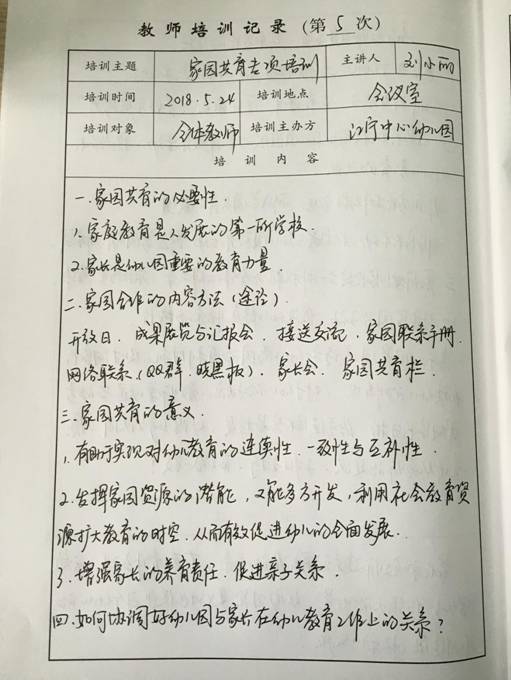 教师培训记录（第5次）
培训主题 家园共育专项培训 主讲人 刘小丽
培训时间 2018.5.24 培训地点 会议室
培训对象 全体教师 培训主办方 江宁中心幼儿园
培训内容
一.家园共育的必要性.
1.家庭教育是人发展的第一所学校.
2.家长是幼儿园重要的教育力量.
二.家园合作的内容方法（途径）.
开放日.成果展览与汇报会.接送交流.家园联系手册.
网络联系（QQ群.晓黑板）.家长会.家园共育栏.
三.家园共育的意义.
1.有助于实现对幼儿教育的连续性.一致性与互补性.
2.发挥家园资源的潜能，又能多方开发，利用社会教育资
源扩大教育的时空.从而有效促进幼儿的全面发展.
3.增强家长的养育责任.促进亲子关系.
四.如何协调好幼儿园与家长在幼儿教育工作上的关系？